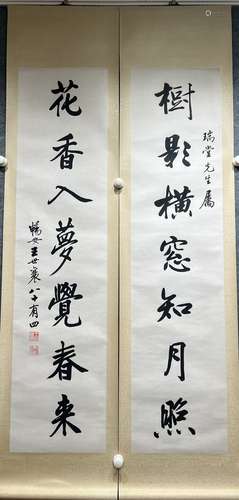 樹影橫窓知月照
瑞堂先生屬
花香入夢覺春来
暢安王世襄八十有四